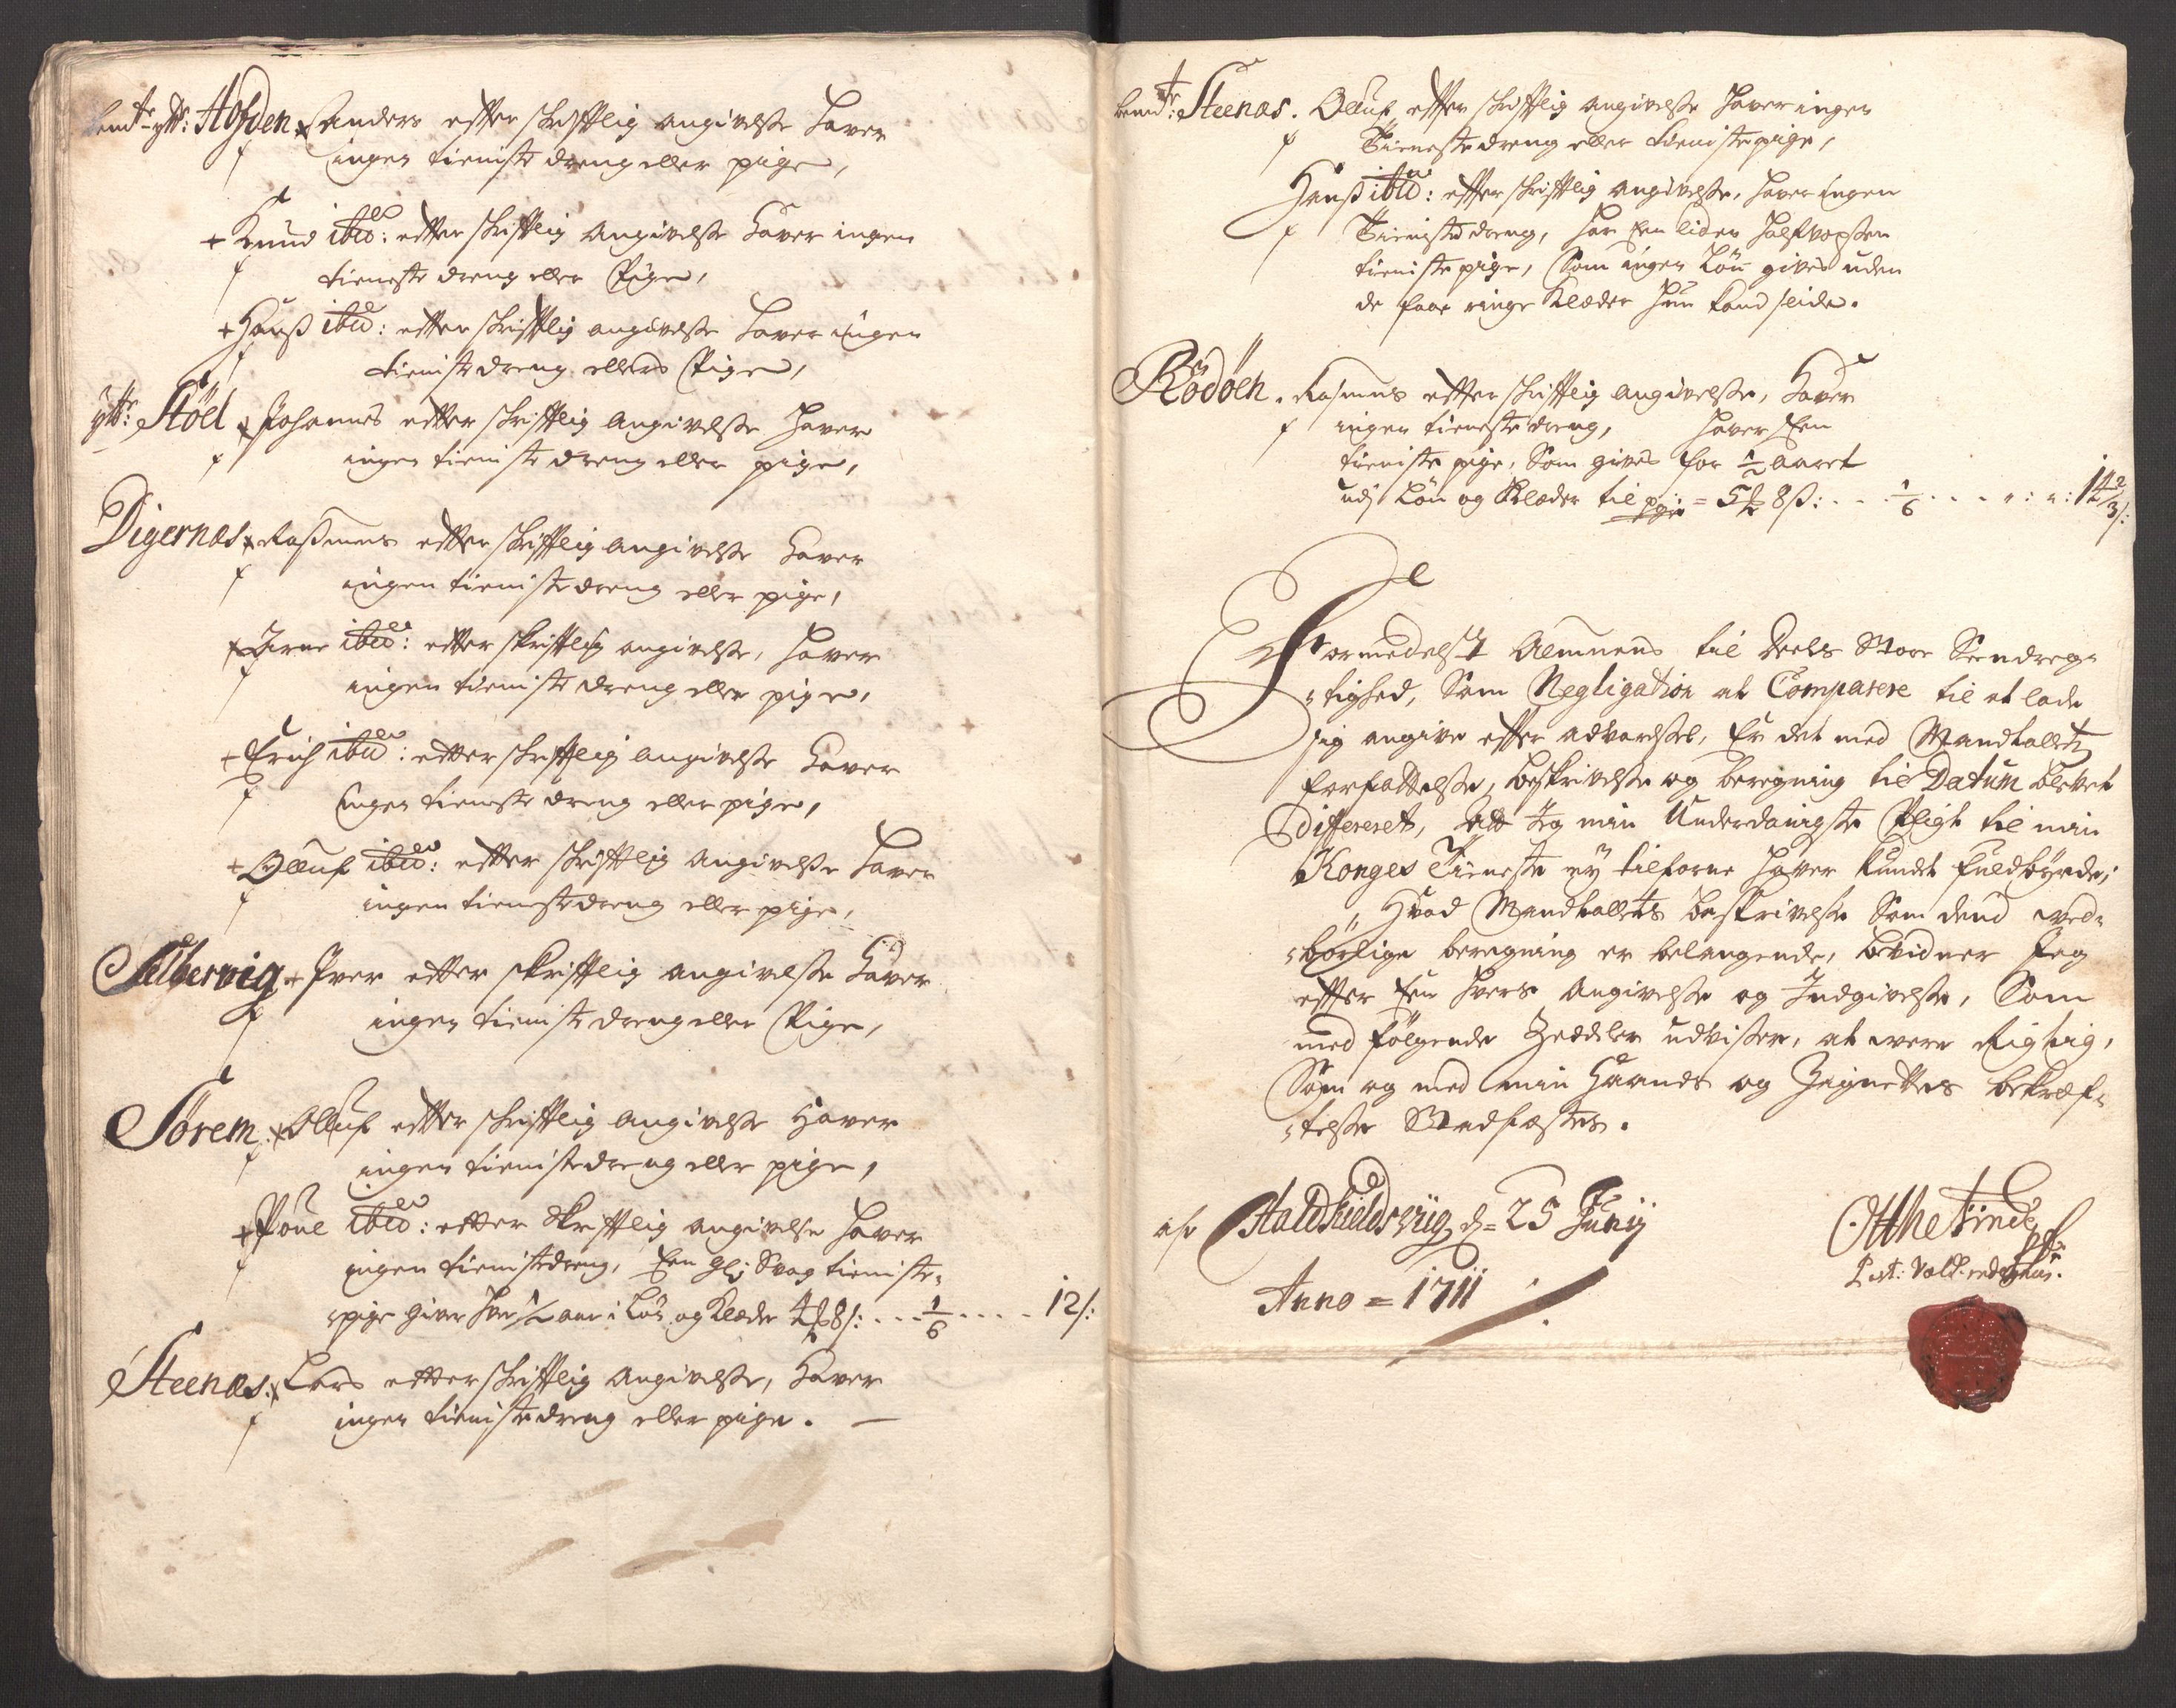 bemte ytt: Hofden Anders efter skrifftlig angivelsse haver
ingen tieniste dreng eller pige,
+ Knud ibid: efter skrifftlig Angivelsse haver ingen
tieneste dreng eller Pige,
+ Hanß ibid: efter skrifftlig angivelsse haver ingen
tieniste dreng ellers Pige,
ytt: Støel Johannes efter skrifftlig Angivelsse haver
ingen tieniste dreng eller pige,
Digernæs Rassmus efter skrifftlig angivelsse haver
ingen tieniste dreng eller pige,
Arne ibid: efter skrifftlig angivelsse, haver
ingen tieniste dreng eller pige,
+ Erich ibid: efter skrifftlig angivelsse haver
ingen tieneste dreng eller pige,
+ Olluf ibid: efter skrifftlig Angivelsse haver
ingen tieneste dreng eller pige,
+ Iver efter skrifftlig angivelsse haver
ingen tieniste dreng eller Pige,
Sørem: Olluf efter skrifftlig Angivelsse haver
ingen tieniste dreng eller pige,
+ Poul ibid: efter Skrifftlig angivelse haver
ingen tienistedreng, Een Svag tieniste-
pige giver hver 1/2 aar i Løn og Klæder 4 8 s: - - - 1/6 - - - - 12 s:
Steenæs: Lars efter skrifftlig Angivelsse, haver
ingen tienistedreng eller pige. —
bemte: Steenæs. Olluf efter skrifftlig angivelsse haver ingen
Tienestedreng eller tienistepige,
Hanß ibid: efter skrifftlig angivelsse, haver ingen
Tienistedreng, har Een liden halfvoxsen
tienistepige, Som ingen Løn gives uden
de faae ringe Klæder hun kand slide.
Rødøen. Rasmus efter skrifftlig angivelsse, haver
ingen tienestedreng, haver Een
tieniste pige, Som gives for 1/2 Aaret
udj Løn og Klæder til = 5 8 ß: - - - 1/6 - - - - 14 2/3 s:
Formedelst Almuens til Deels Store Sendreg-
tighed, Som Negligation at Comparere til at lade
sig angive effter advarelssel, Er det med Mandtallets
forfattelsse, beskrivelsse og beregning til Datum blevet
Differeret, att Jeg min Underdanigste Pligt til min
Konges Tieneste ey tilforne haver kundet fuldbyrde;
Hvad Mandtallets beskrivelsse Som dend ved-
børlige beregning er belangende, bevidner Jeg
effter Een hvers Angivelsse og Indgivelsse, Som
med følgende Zeddeler udvisser, at være Rigtig,
Som og med min Haands og Zignettes bekræf-
telsse Stadfæstes.
Haldkieldsviig d= 25 Junij
Anno = 1711